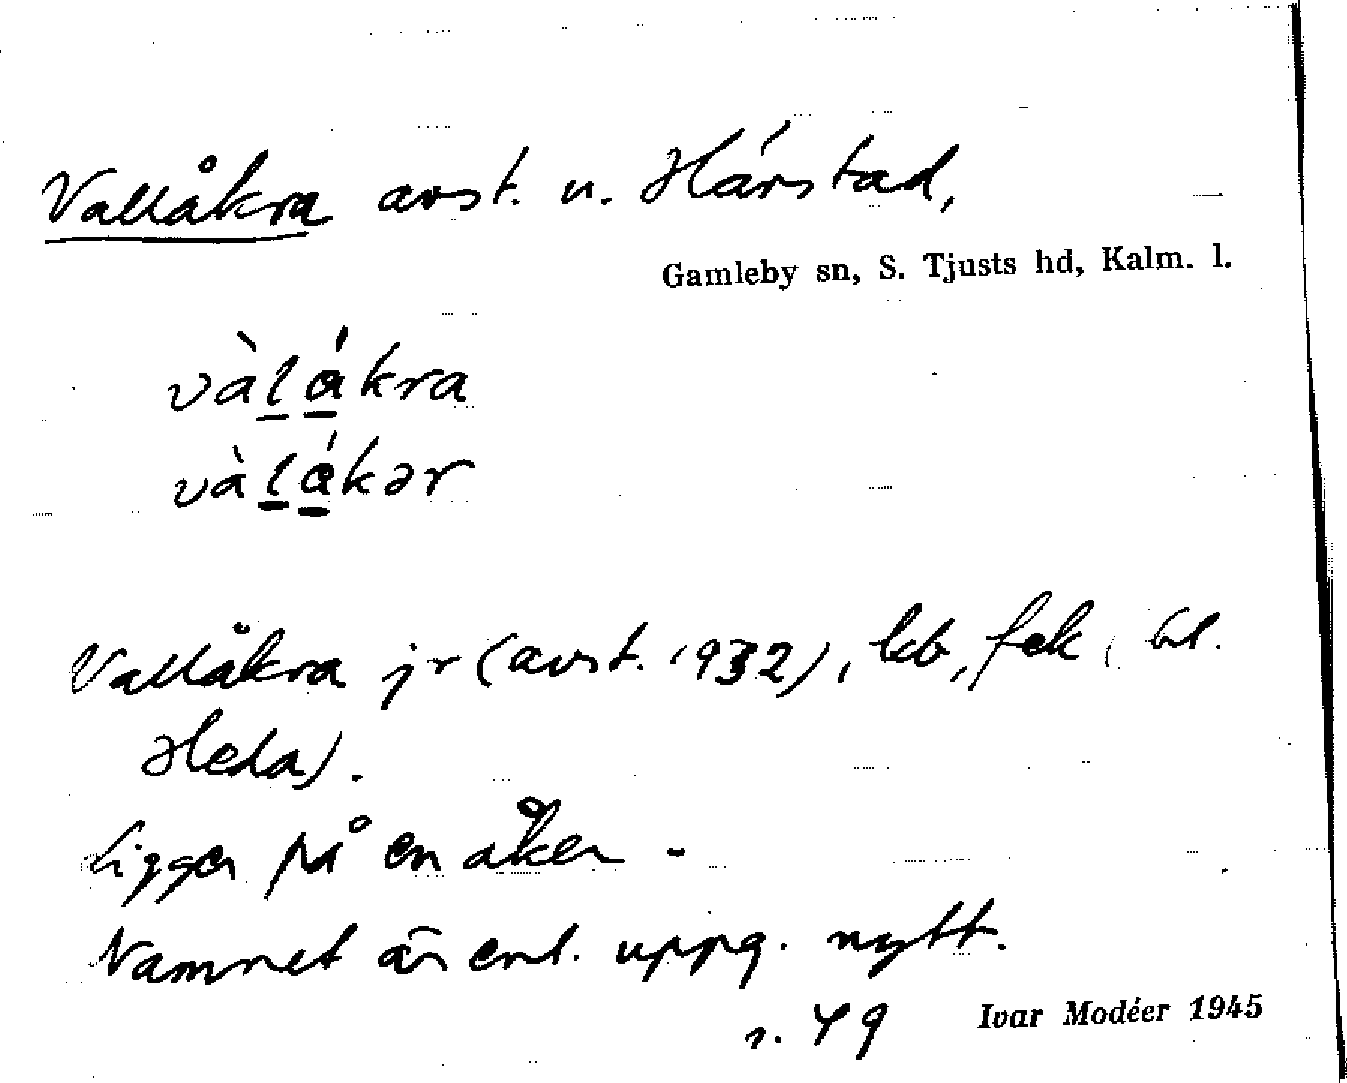 Vallåkra avst. u. Hårstad,
Gamleby sn, S. Tjusts hd, Kalm. l.
vàlákra
vàlákər
Vallåkra jr (avst. 1932), kb, fek,
Heda).
Ligger på en åker.
Namnet är enl. uppg. nytt.
49
Ivar Modéer 1945